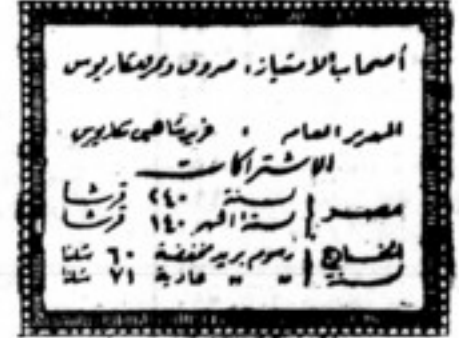 أصحاب الامتياز: صروف ونمر ومكاريوس
المدير العام : فريد شاهين مكاريوس
الاشتراكات
مصر { لسنة ٢٤٠ قرشا
لستة اشهر ١٤٠ قرشا
الخارج لسنة { رسوم بريد مخفضة ٦٠ شلنا
" " عادية ٧١ شلنا